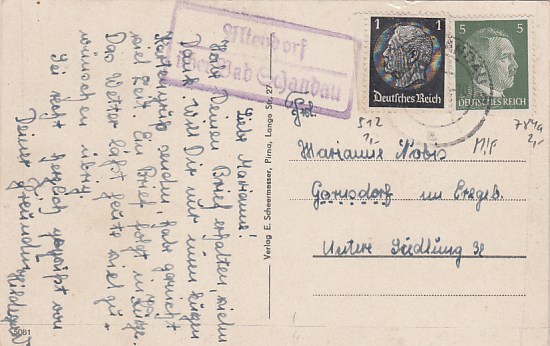 Altendorf
über Bad Schandau
1
1
Deutsches Reich
5
5
DEUTSCHES REICH
512
1,-
784a
2,-
MiF
Abs.
Liebe Marianne!
Habe Deinen Brief erhalten vielen
Dank, will Dir nur einen kurzen
Kartengruß senden, hab garnicht
viel Zeit. Ein Brief folgt in Kürze.
Das Wetter läßt heute viel zu
wünschen übrig.
Sei recht herzlich gegrüßt von
Deiner Freundin Hildegard
Verlag E. Scheermesser, Pirna, Lange Str. 27
Marianne Nobis
Gornsdorf im Erzgeb.
Untere Siedlung
5081